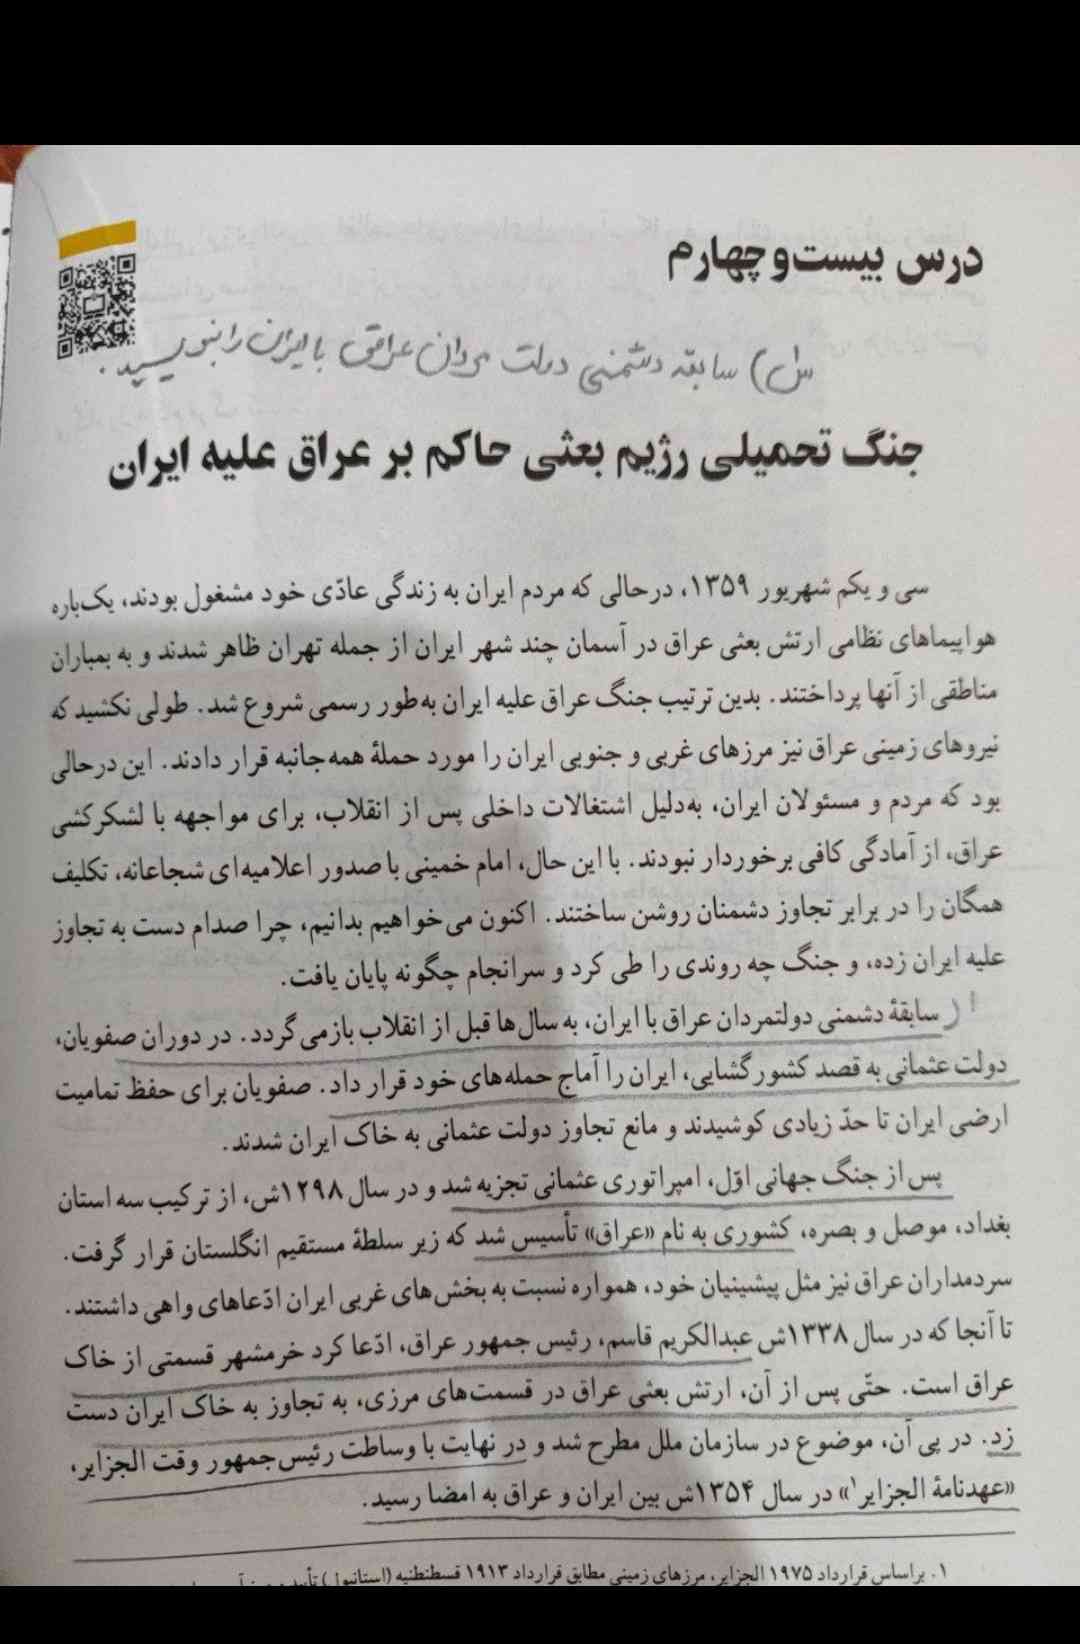 درس بیست‌و‌چهارم
س۱) سابقه دشمنی دولت مردان عراقی با ایران را بنویسید.
جنگ تحمیلی رژیم بعثی حاکم بر عراق علیه ایران
سی و یکم شهریور ۱۳۵۹، درحالی که مردم ایران به زندگی عادّی خود مشغول بودند، یک‌باره
هواپیماهای نظامی ارتش بعثی عراق در آسمان چند شهر ایران از جمله تهران ظاهر شدند و به بمباران
مناطقی از آنها پرداختند. بدین ترتیب جنگ عراق علیه ایران به‌طور رسمی شروع شد. طولی نکشید که
نیروهای زمینی عراق نیز مرزهای غربی و جنوبی ایران را مورد حملهٔ همه‌جانبه قرار دادند. این درحالی
بود که مردم و مسئولان ایران، به‌دلیل اشتغالات داخلی پس از انقلاب، برای مواجهه با لشکرکشی
عراق، از آمادگی کافی برخوردار نبودند. با این حال، امام خمینی با صدور اعلامیه‌ای شجاعانه، تکلیف
همگان را در برابر تجاوز دشمنان روشن ساختند. اکنون می‌خواهیم بدانیم، چرا صدام دست به تجاوز
علیه ایران زده، و جنگ چه روندی را طی کرد و سرانجام چگونه پایان یافت.
سابقهٔ دشمنی دولتمردان عراق با ایران، به سال‌ها قبل از انقلاب بازمی‌گردد. در دوران صفویان،
دولت عثمانی به قصد کشورگشایی، ایران را آماج حمله‌های خود قرار داد. صفویان برای حفظ تمامیت
ارضی ایران تا حدّ زیادی کوشیدند و مانع تجاوز دولت عثمانی به خاک ایران شدند.
پس از جنگ جهانی اوّل، امپراتوری عثمانی تجزیه شد و در سال ۱۲۹۸ش، از ترکیب سه استان
بغداد، موصل و بصره، کشوری به نام «عراق» تأسیس شد که زیر سلطهٔ مستقیم انگلستان قرار گرفت.
سردمداران عراق نیز مثل پیشینیان خود، همواره نسبت به بخش‌های غربی ایران ادّعاهای واهی داشتند.
تا آنجا که در سال ۱۳۳۸ش عبدالکریم قاسم، رئیس جمهور عراق، ادّعا کرد خرمشهر قسمتی از خاک
عراق است. حتّی پس از آن، ارتش بعثی عراق در قسمت‌های مرزی، به تجاوز به خاک ایران دست
زد. در پی آن، موضوع در سازمان ملل مطرح شد و در نهایت با وساطت رئیس‌جمهور وقت الجزایر،
«عهدنامهٔ الجزایر۱» در سال ۱۳۵۴ش بین ایران و عراق به امضا رسید.
۱. براساس قرارداد ۱۹۷۵ الجزایر، مرزهای زمینی مطابق قرارداد ۱۹۱۳ قسطنطنیه (استانبول)